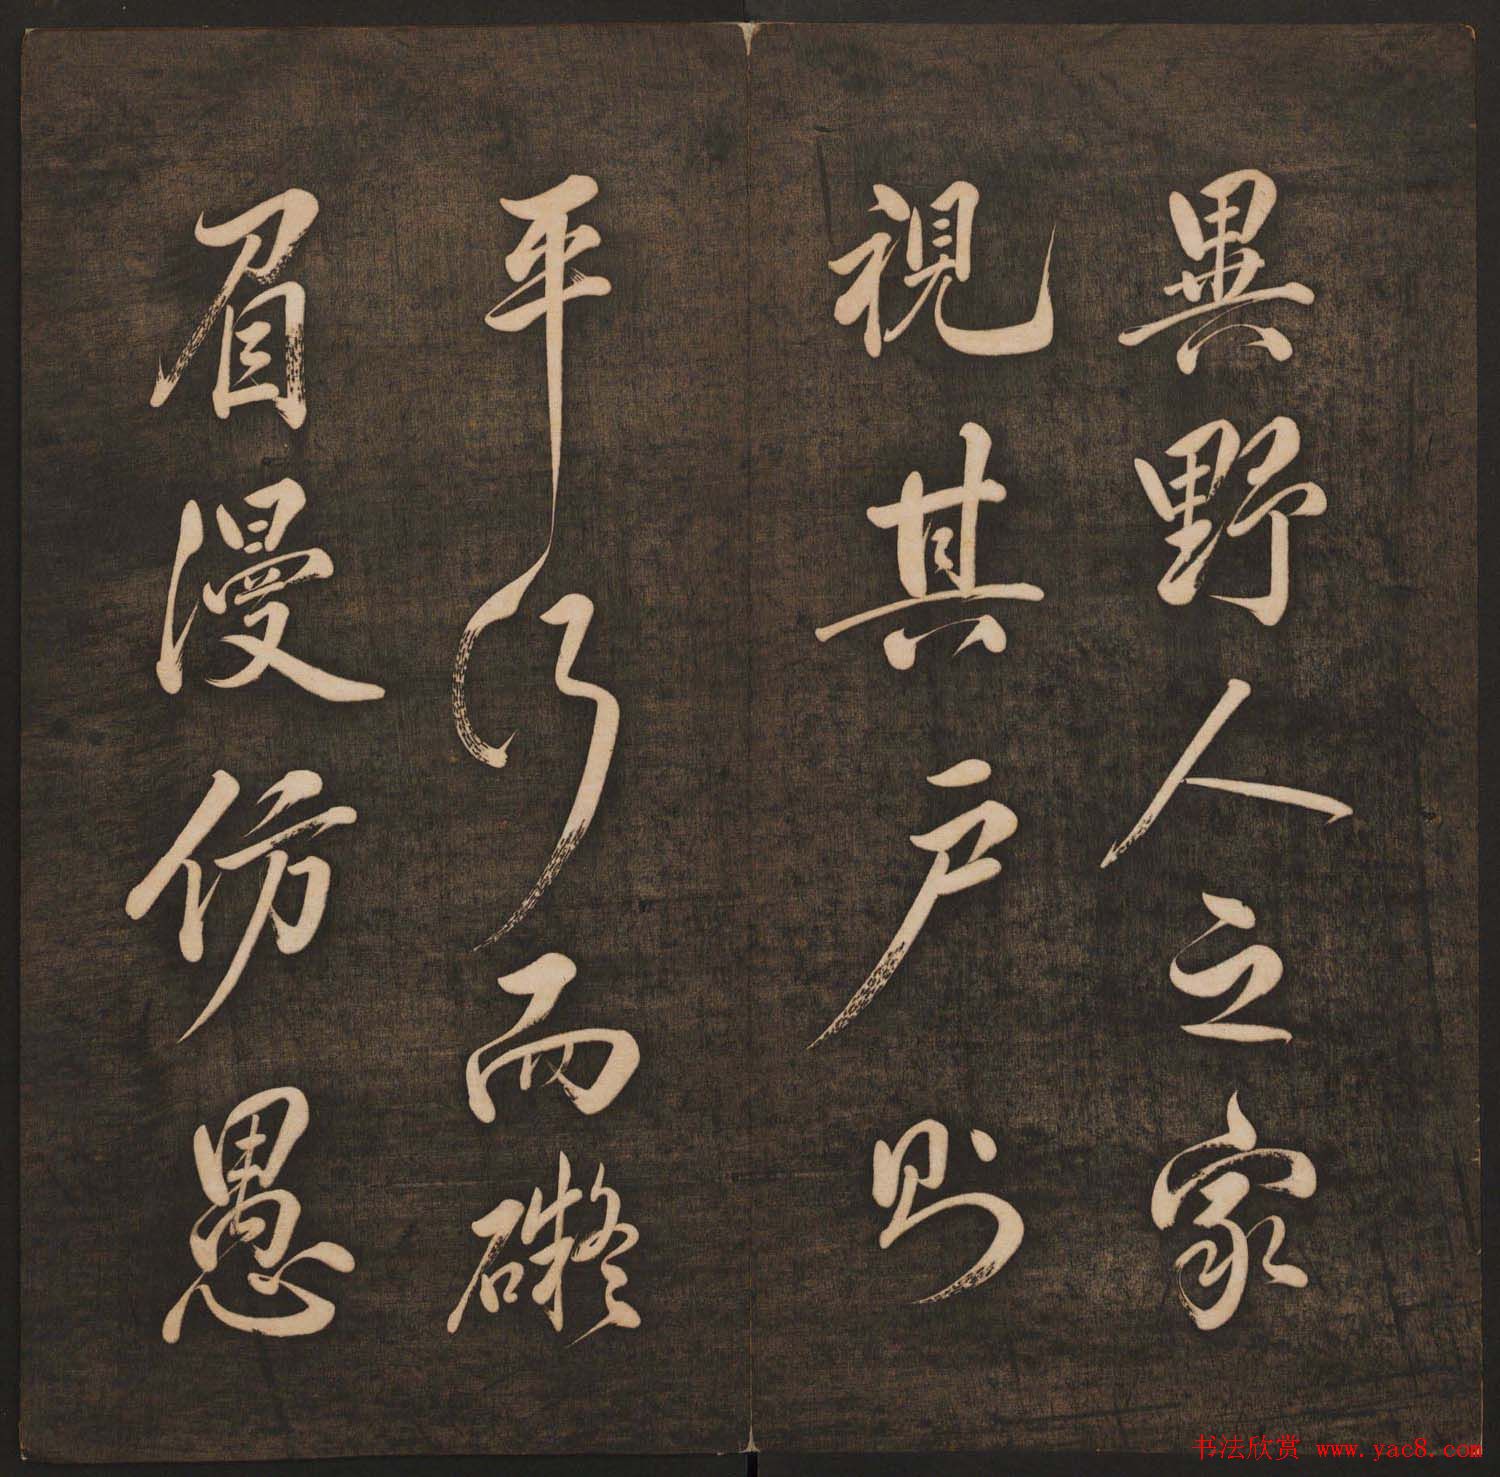 異野人之家
視其戶則
平行而礙
眉漫仿愚
书法欣赏 www.yac8.com